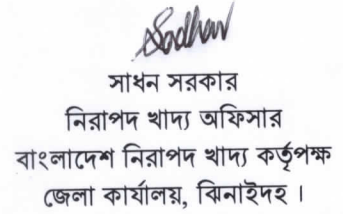 Sadhan
সাধন সরকার
নিরাপদ খাদ্য অফিসার
বাংলাদেশ নিরাপদ খাদ্য কর্তৃপক্ষ
জেলা কার্যালয়, ঝিনাইদহ ।